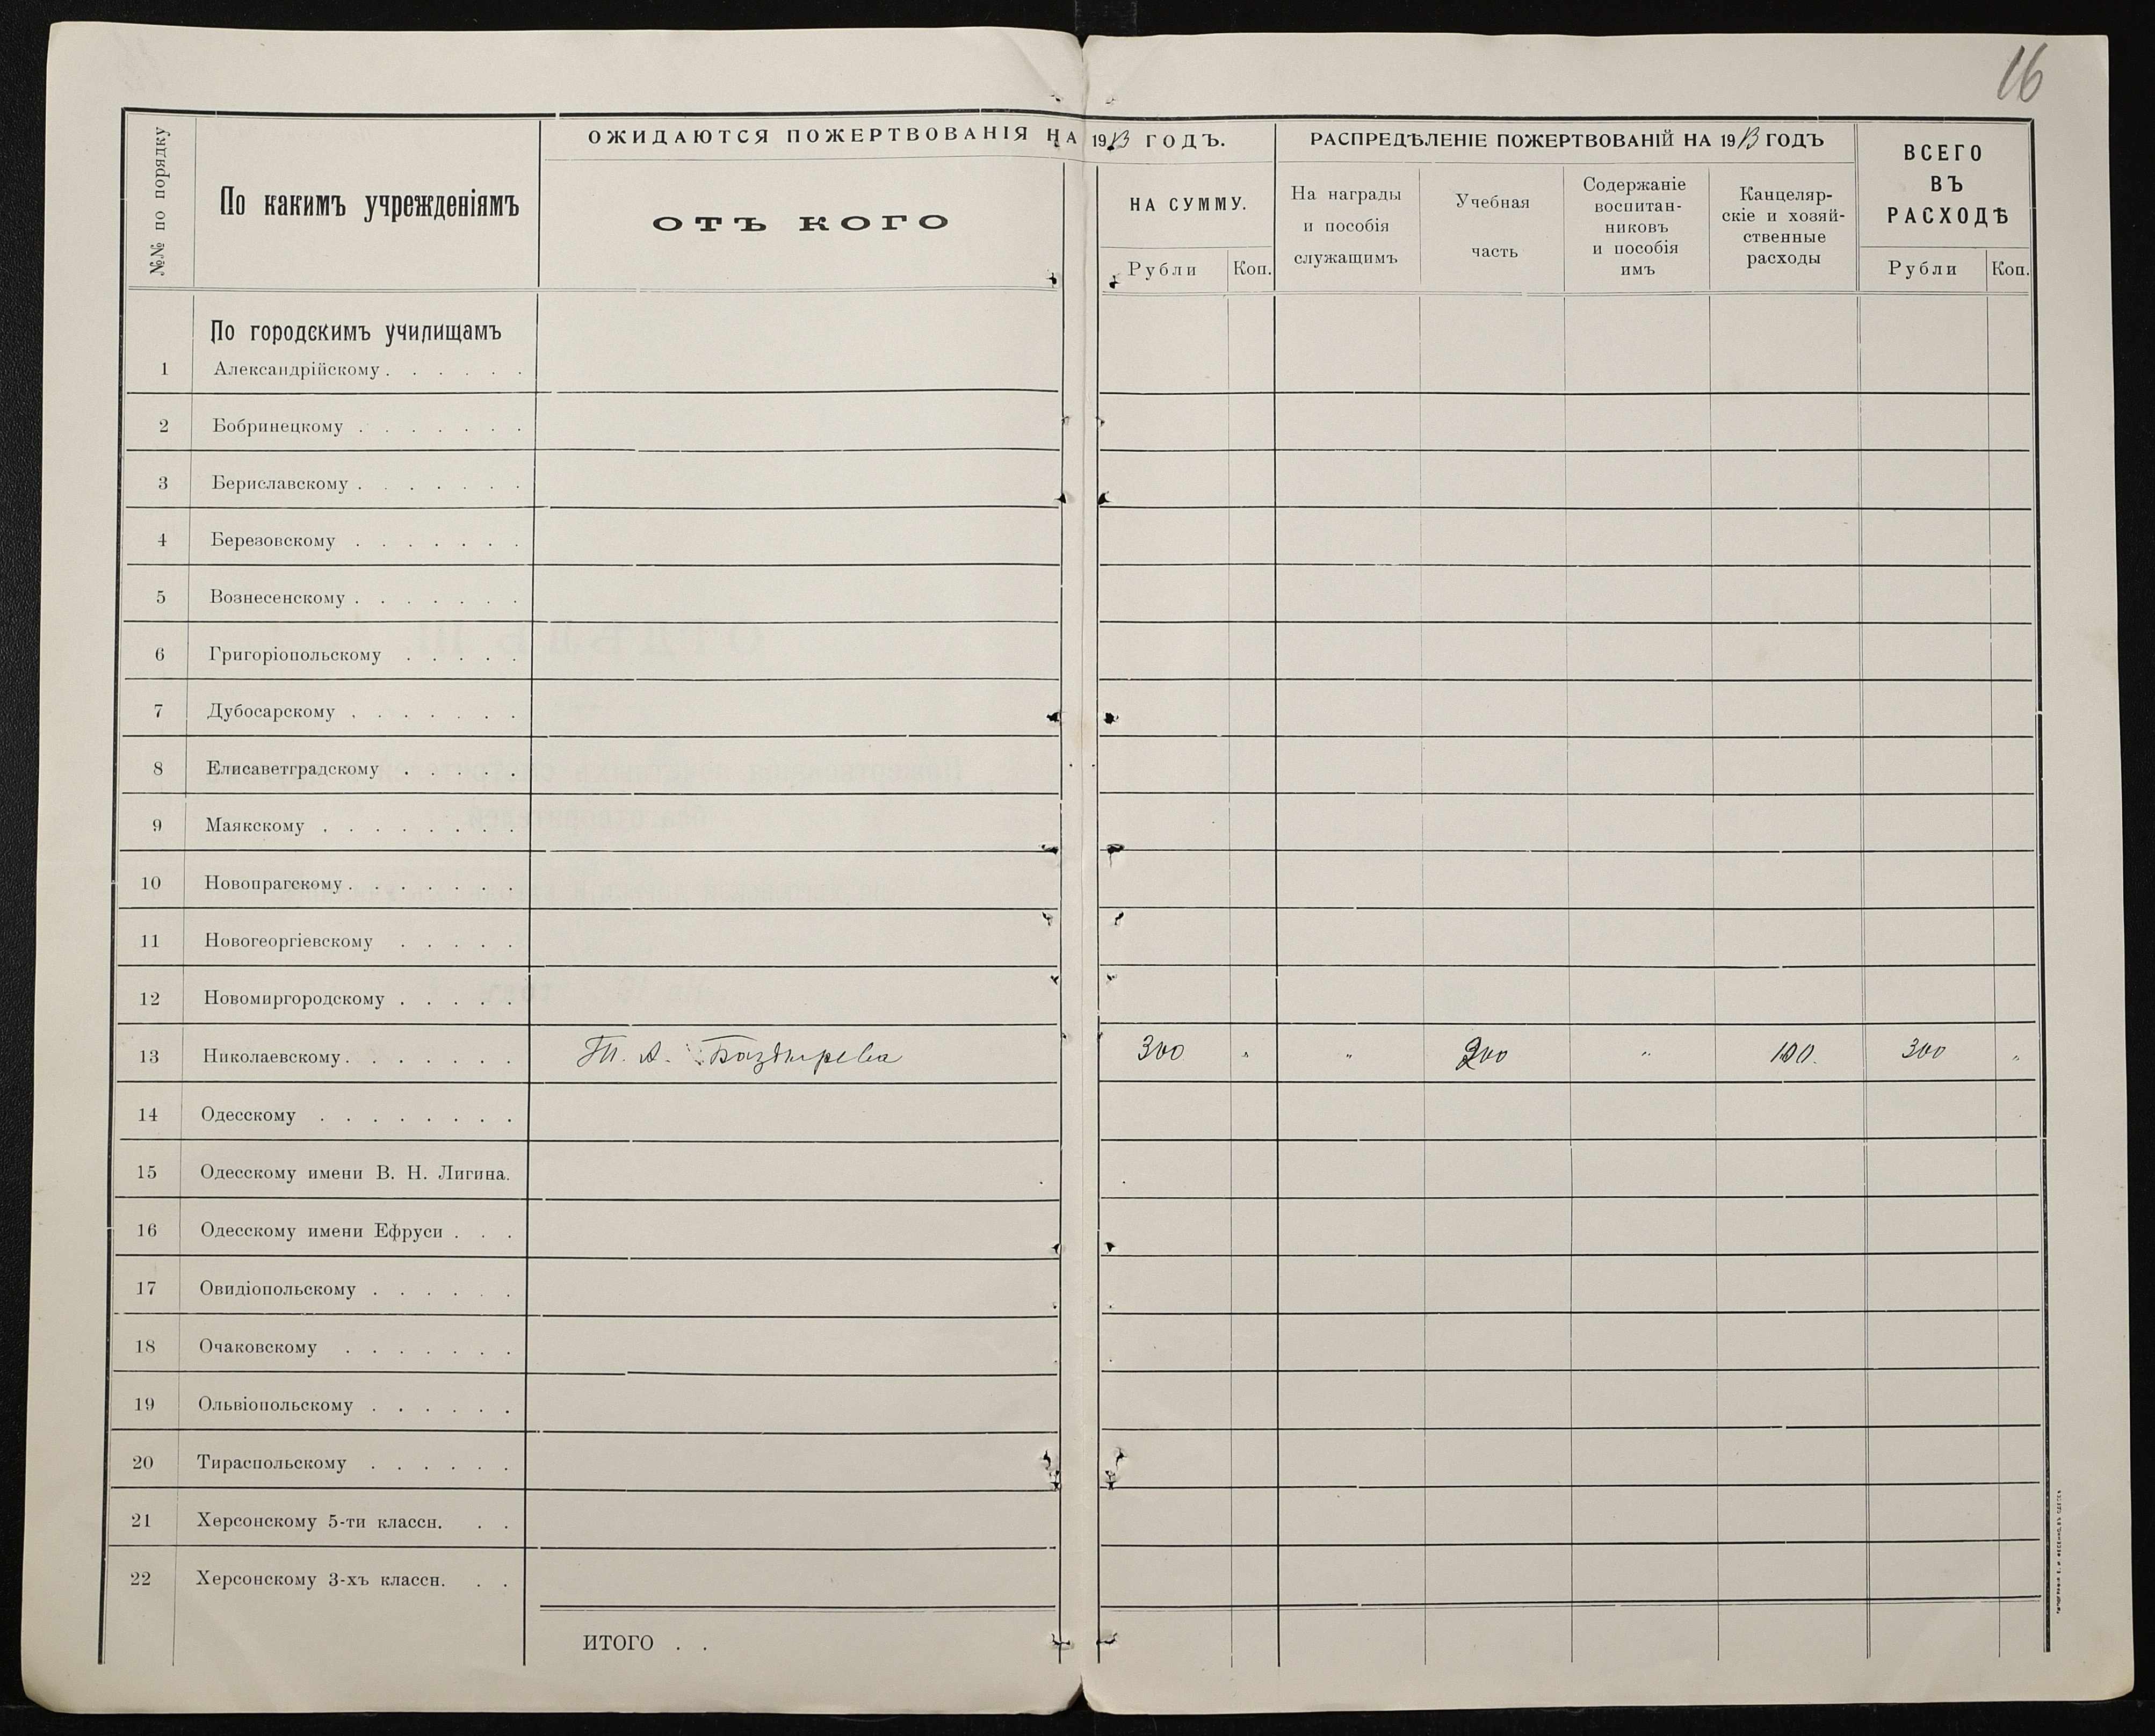 16
ОЖИДАЮТСЯ ПОЖЕРТВОВАНІЯ НА 1913 ГОДЪ.
РАСПРЕДѢЛЕНІЕ ПОЖЕРТВОВАНІЙ НА 1913 ГОДЪ
ВСЕГО
ВЪ
РАСХОДѢ
№№ по порядку
По какимъ учрежденіямъ
ОТЪ КОГО
НА СУММУ.
Рубли Коп.
На награды
и пособія
служащимъ
Учебная
часть
Содержаніе
воспитан-
никовъ
и пособія
имъ
Канцеляр-
скіе и хозяй-
ственные
расходы
Рубли Коп.
По городскимъ училищамъ
1 Александрійскому . . . . . .
2 Бобринецкому . . . . . . .
3 Бериславскому . . . . . . .
4 Березовскому . . . . . . .
5 Вознесенскому . . . . . . .
6 Григоріопольскому . . . . .
7 Дубосарскому . . . . . . .
8 Елисаветградскому . . . . .
9 Маякскому . . . . . . . .
10 Новопрагскому . . . . . . .
11 Новогеоргіевскому . . . . .
12 Новомиргородскому . . . . .
13 Николаевскому . . . . . . . Т. А. Баздырева 300 „ „ 200 „ 100. 300 „
14 Одесскому . . . . . . . .
15 Одесскому имени В. Н. Лигина.
16 Одесскому имени Ефруси . . .
17 Овидіопольскому . . . . . .
18 Очаковскому . . . . . . .
19 Ольвіопольскому . . . . . .
20 Тираспольскому . . . . . .
21 Херсонскому 5-ти классн. . .
22 Херсонскому 3-хъ классн. . .
ИТОГО . .